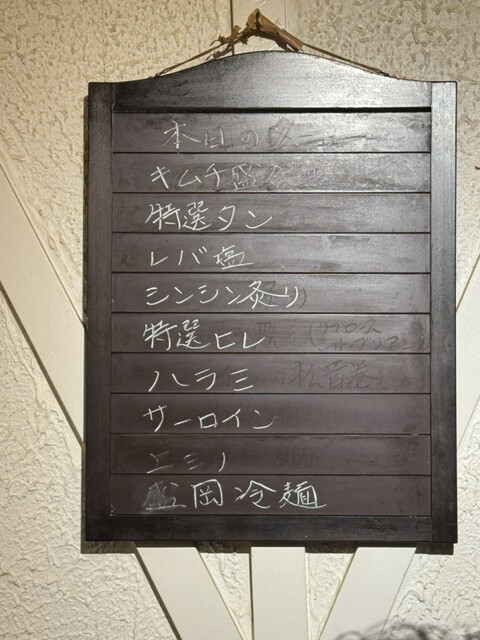 本日のタニュー
キムチ盛
特選タン
レバ塩
シンシン炙り
特選ヒレ
ハラミ
サーロイン
エミノ
盛岡冷麺